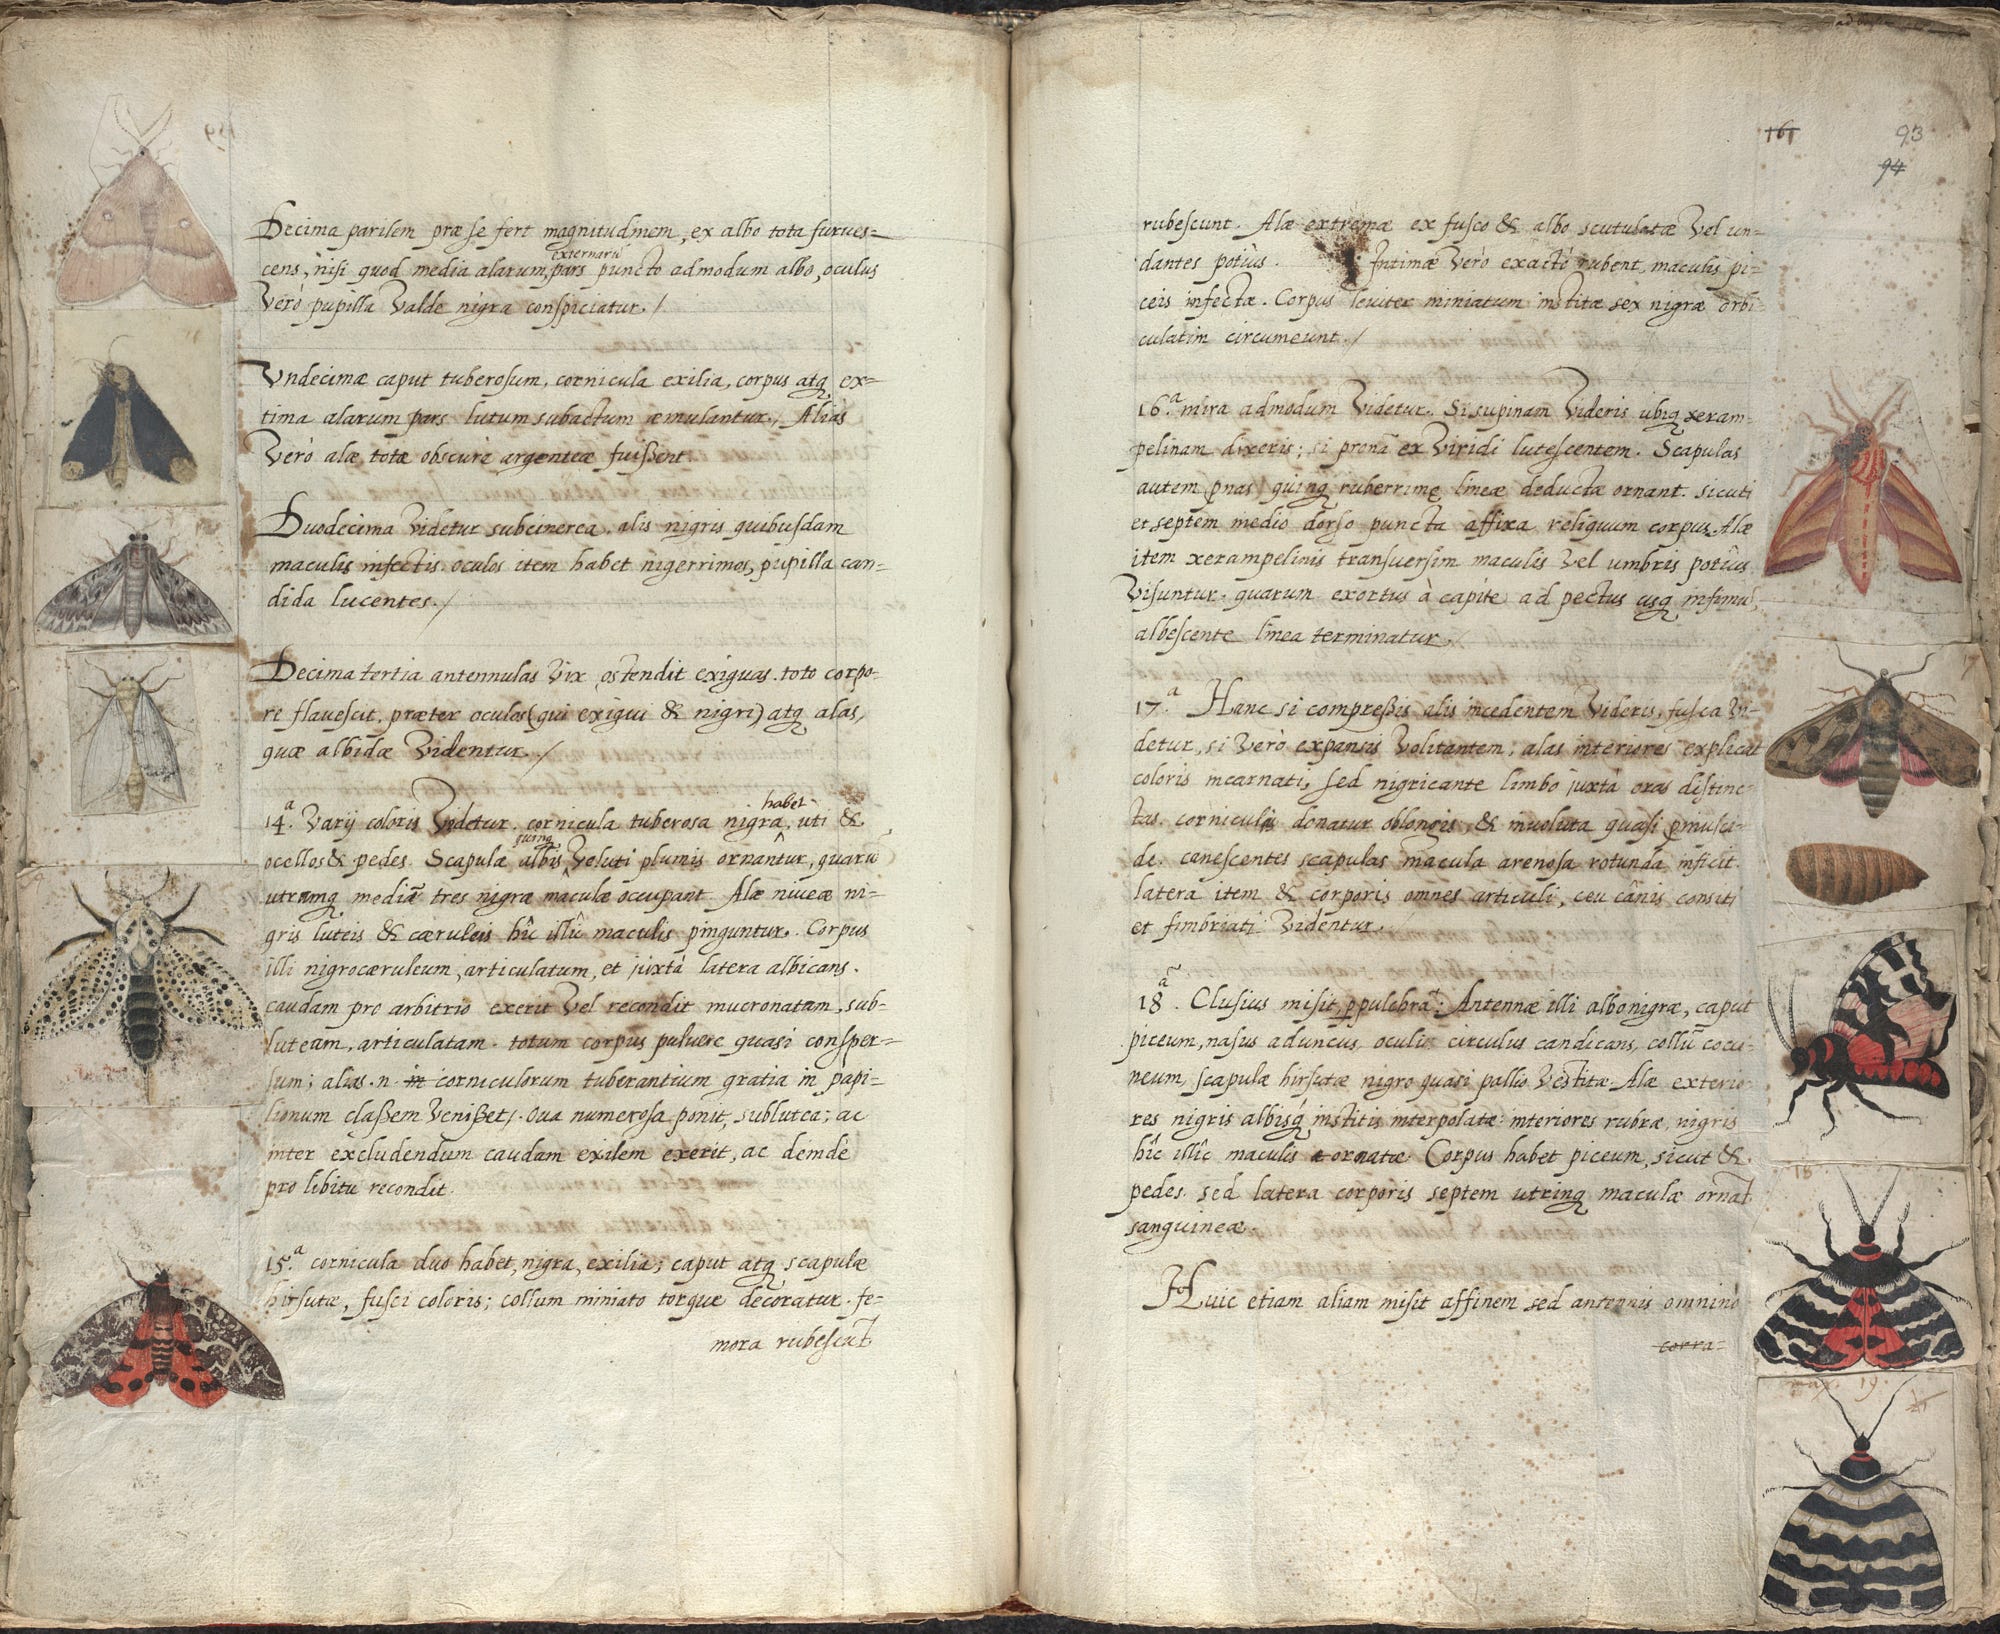 Decima parilem præ se fert magnitudinem, ex albo tota furves=
externarũ
cens, nisi quod media alarum pars puncto admodum albo, oculus
Verò pupilla Valde nigra conspiciatur. /
Vndecimæ caput tuberosum, cornicula exilia, corpus atq ex=
tima alarum pars lutum subactum æmulantur. / Aliàs
Verò alæ totæ obscurè argenteæ fuissent.
Duodecima Videtur subcinerea. alis nigris quibusdam
maculis infectis. oculos item habet nigerrimos, pupilla can=
dida lucentes. /
Decima tertia antennulas Vix ostendit exiguas. toto corpo=
re flavescit, præter oculos (qui exigui & nigri) atq alas,
quæ albidæ Videntur. /
habet
14.ª Varij coloris Videtur. cornicula tuberosa nigra, uti &
quinq
ocellos & pedes. Scapulæ albis Veluti plumis ornantur, quarũ
utramq mediã tres nigræ maculæ occupant. Alæ niveæ ni=
gris luteis & cæruleis hîc illîc maculis pinguntur. Corpus
illi nigrocæruleum, articulatum, et juxtà latera albicans.
caudam pro arbitrio exerit Vel recondit mucronatam, sub=
luteam, articulatam. totum corpus pulvere quasi consper=
sum; alias .n. in corniculorum tuberantium gratia in papi=
lionum classem Venisset /. Oua numerosa ponit, sublutea; ac
inter excludendum caudam exilem exerit, ac deinde
pro libitu recondit.
15.ª cornicula duo habet, nigra, exilia; caput atq scapulæ
hirsutæ, fusci coloris; collum miniato torque decoratur. fe=
mora rubescũt
161
93
94
rubescunt. Alæ extremæ ex fusco & albo scutulatæ Vel un=
dantes potius. Intimæ Verò exactè rubent, maculis pi=
ceis infectæ. Corpus leviter miniatum institæ sex nigræ orbi=
culatim circumeunt. /
16.ª mira admodum Videtur. Si supinam Videris ubiq xeram=
pelinam dixeris; si pronã ex Viridi lutescentem. Scapulas
autem pnas quinq ruberrimę lineæ deductæ ornant. sicuti
et septem medio dorso puncta affixa reliquum corpus. Alæ
item xerampelinis transversim maculis Vel umbris potius
Visuntur. quarum exortus à capite ad pectus usq infimũ,
albescente linea terminatur. /
17.ª Hanc si compressis alis incedentem Videris, fusca Vi=
detur, si Verò expansis Volitantem, alas interiores explicat
coloris incarnati, sed nigricante limbo juxtà oras distinc=
tas. corniculis donatur oblongis, & involuta quasi pmusci=
de. canescentes scapulas macula arenosa rotunda inficit.
latera item & corporis omnes articuli, ceu cânis consiti
et fimbriati Videntur. /
18.ª Clusius misit, ppulchrã: Antennæ illi albonigræ, caput
piceum, nasus aduncus, oculi circulus candicans, collũ cocci=
neum, scapulæ hirsutæ nigro quasi pallio Vestitæ. Alæ exterio=
res nigris albisq institis interpolatæ: interiores rubræ, nigris
hîc illîc maculis ornatæ. Corpus habet piceum, sicut &
pedes. sed latera corporis septem utrinq maculæ ornãt
sanguineæ.
Huic etiam aliam misit affinem sed antennis omninò
corra=
17
18
19.